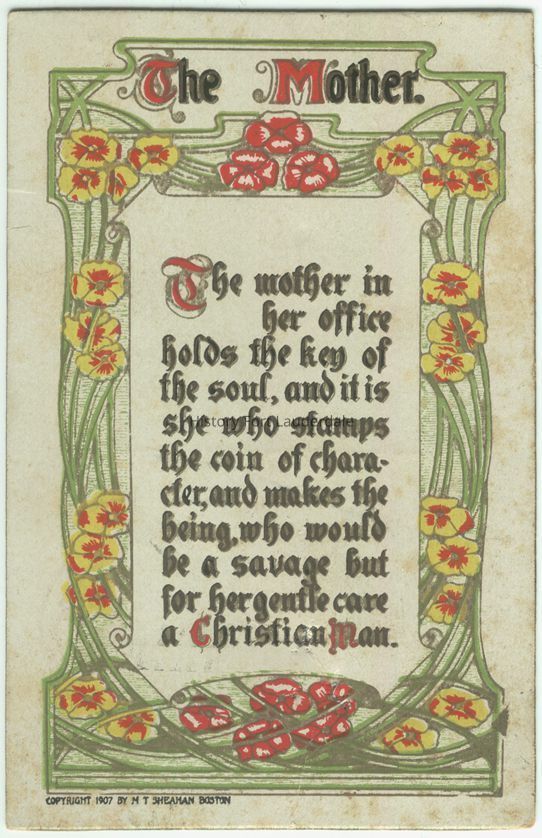 The Mother.
The mother in
her office
holds the key of
the soul, and it is
she who stamps
History Fort Lauderdale
the coin of chara-
cter, and makes the
being, who would
be a savage but
for her gentle care
a Christian Man.
COPYRIGHT 1907 BY M T SHEAHAN BOSTON